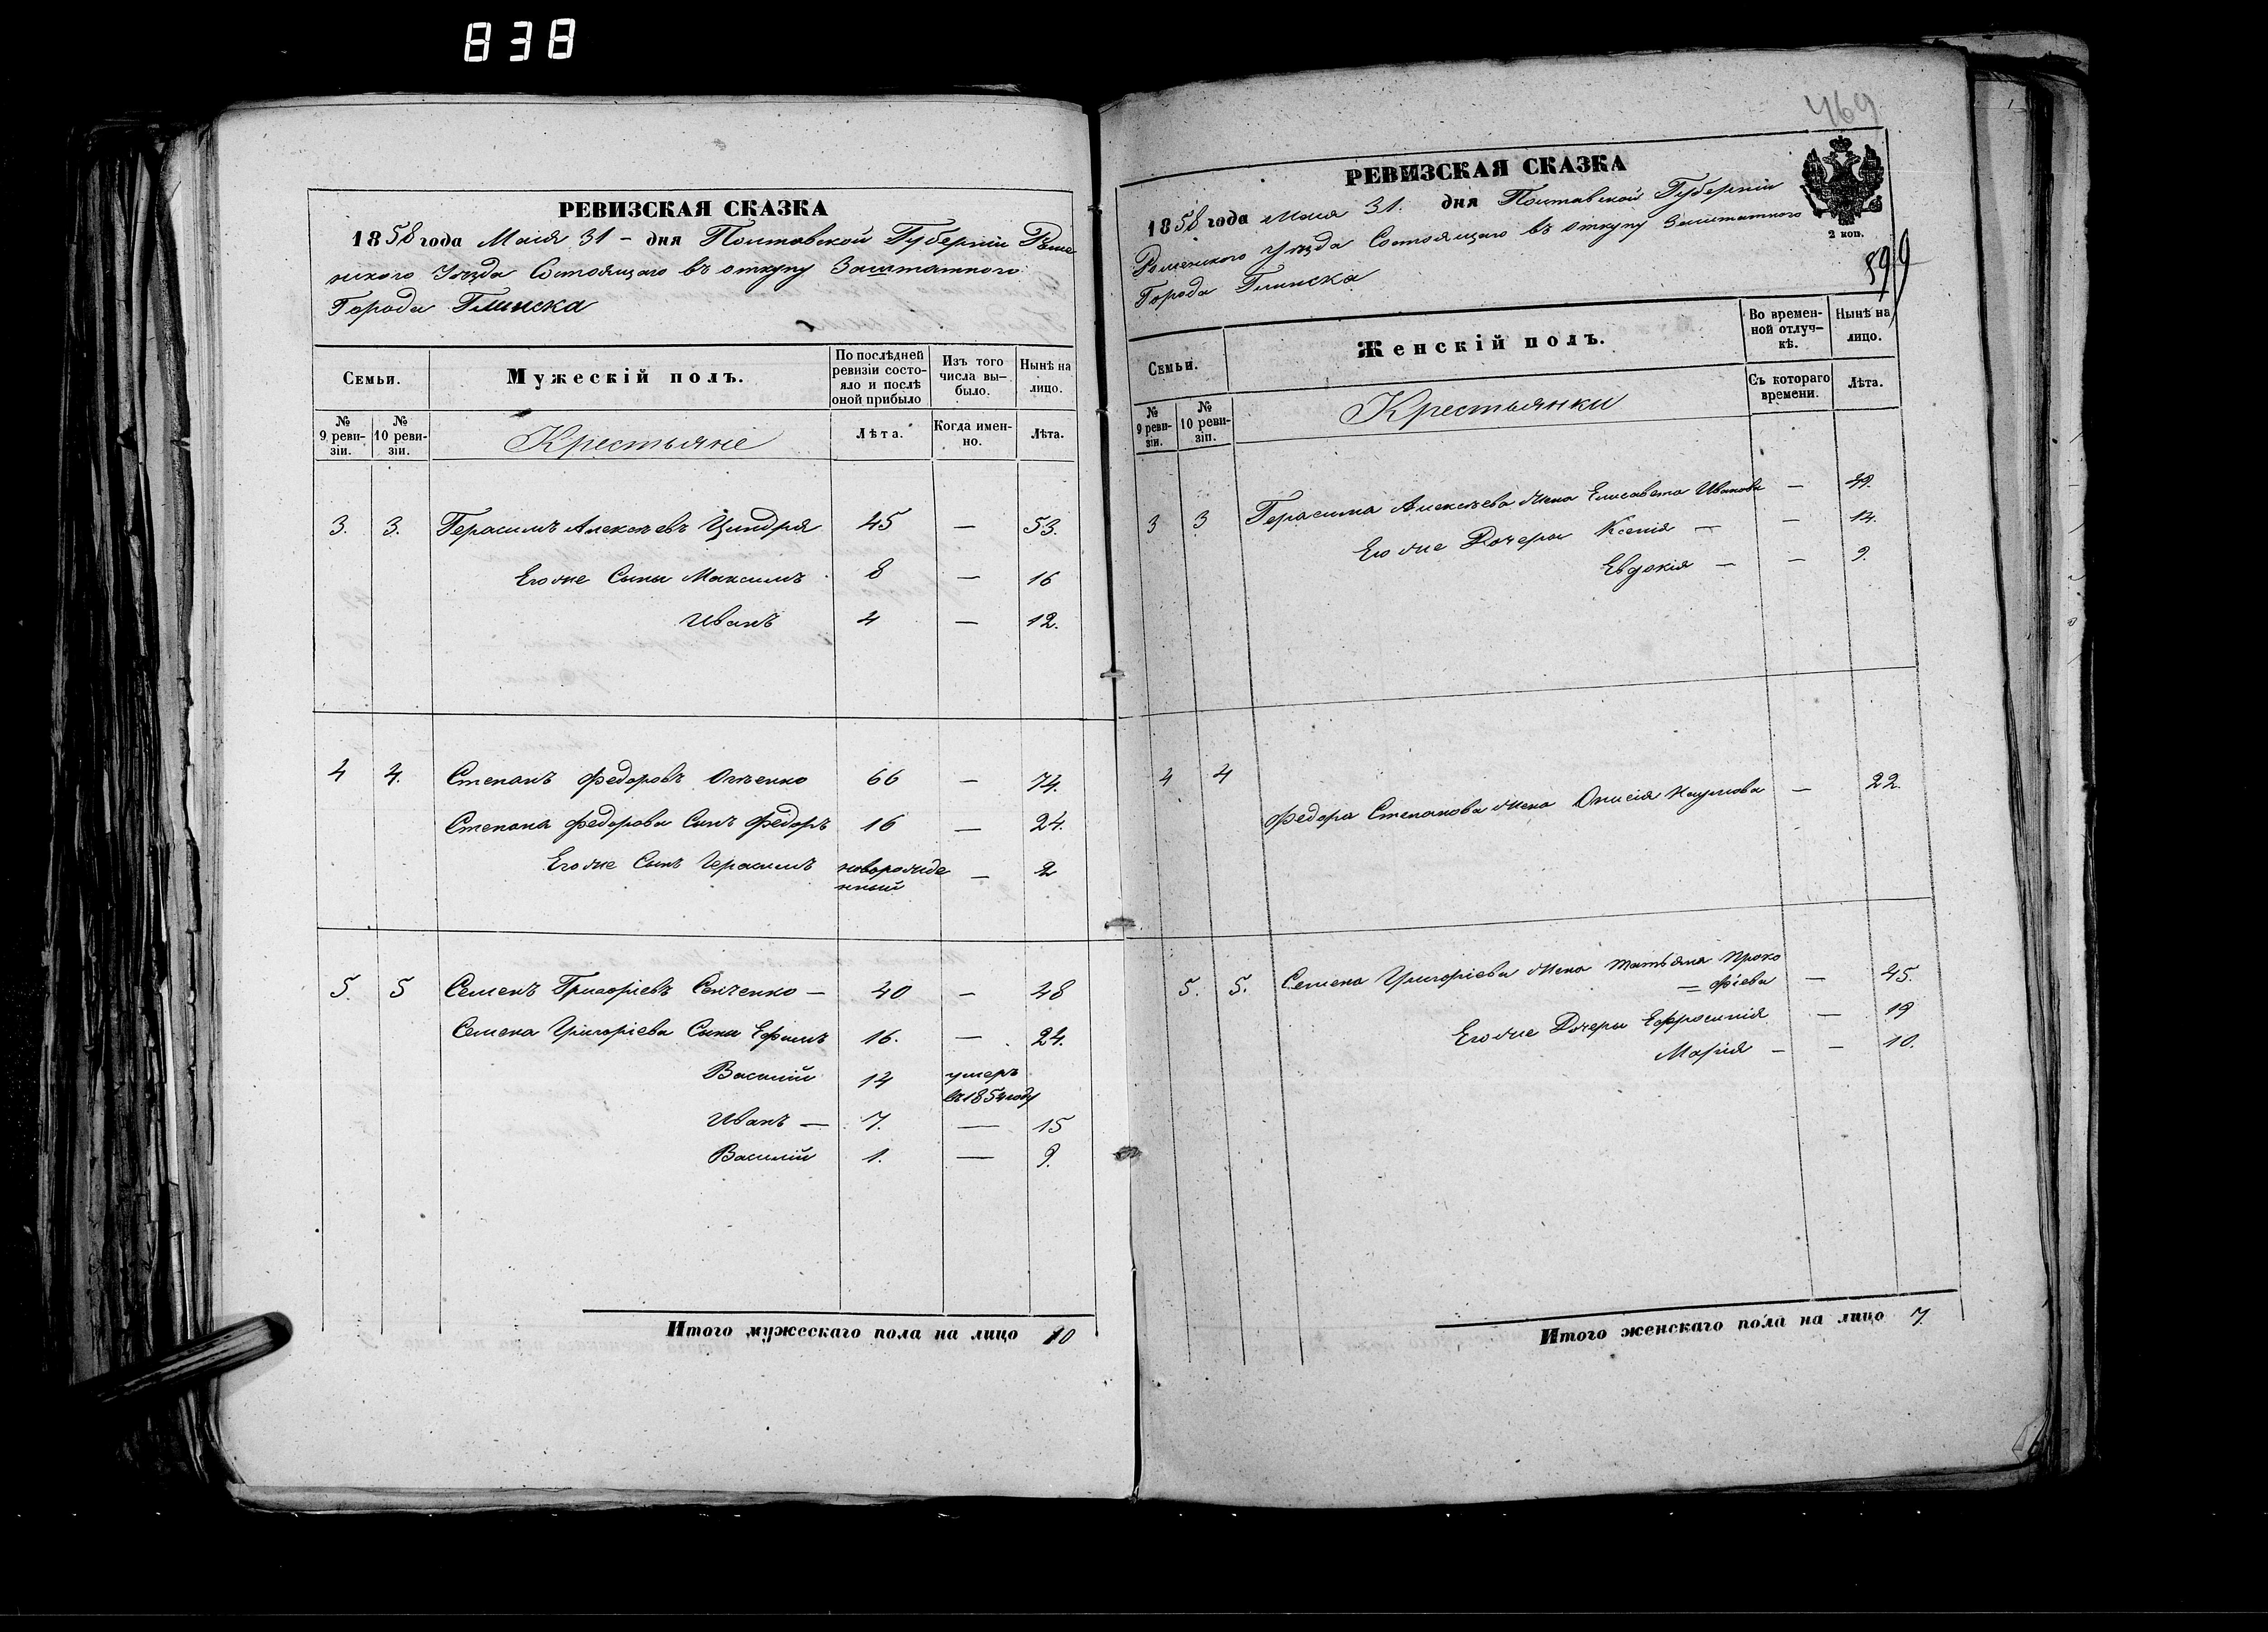 838
РЕВИЗСКАЯ СКАЗКА
1858 года Маія 31 - дня Полтавской Губерніи Роме
нского Уѣзда Состоящаго въ откупу Заштатного
Города Глинска
Семьи.
Мужескій полъ.
По послѣдней ревизіи состо-яло и послѣ оной прибыло
Изъ того числа вы-было.
Нынѣ на лицо.
№ 9 реви-зіи.
№ 10 реви-зіи.
Крестьяне
Лѣта.
Когда имен-но.
Лѣта.
3. 3. Герасимъ Алексѣевъ Циндря 45 — 53.
Его же Сыны Максимъ 8 — 16
Иванъ 4 — 12.
4 4. Степанъ Федоровъ 66 — 74.
Степана Федорова Сынъ Федоръ 16 — 24.
Его же Сынъ Герасимъ новорожде — 2
нный
5. 5 Семенъ Григоріевъ Сенченко — 40 — 48
Семена Григоріева Сыны Ефимъ 16. — 24.
Василій 14 умеръ
въ 1854 году
Иванъ — 7. — 15
Василій 1. — 9.
Итого мужескаго пола на лицо 10
469
РЕВИЗСКАЯ СКАЗКА
1858 года Маия 31. дня Полтавской Губерніи
Роменского Уѣзда Состоящаго въ откупу Заштатного
Города Глинска
2 коп.
599
Семьи.
Женскій полъ.
Во времен-ной отлуч-кѣ.
Нынѣ на лицо.
№ 9 реви-зіи.
№ 10 реви-зіи.
Крестьянки
Съ котораго времени.
Лѣта.
3 3 Герасима Алексѣева жена Елисавета Иванова — 49.
Его же Дочери Ксенія — — 14.
Евдокія — — 9.
4 4
Федора Степанова жена Наумова — 22.
5. 5. Семена Григоріева жена Татьяна Проко
= фіева — 45.
Его же Дочери Ефросинія — 19
Марія — — 10.
Итого женскаго пола на лицо 7.